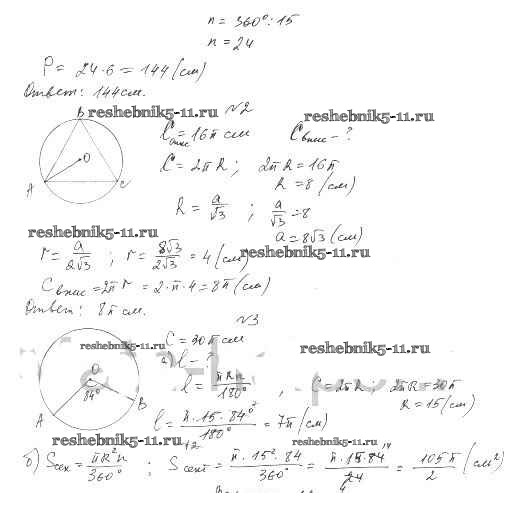 n = 360° : 15
n = 24
P = 24 · 6 = 144 (см)
Ответ: 144 см.
reshebnik5-11.ru
№2
reshebnik5-11.ru
B
O
A
C
Cопис = 16π см
Cвпис - ?
C = 2πR ; 2πR = 16π
R = 8 (см)
R = a/√3 ; a/√3 = 8
a = 8√3 (см)
reshebnik5-11.ru
r = a/2√3 ; r = 8√3/2√3 = 4 (см)
reshebnik5-11.ru
Cвпис = 2πr = 2 · π · 4 = 8π (см)
Ответ: 8π см.
№3
C = 30π см
reshebnik5-11.ru
а) l - ?
reshebnik5-11.ru
O
84°
A
B
l = πRn/180° , C = 2πR ; 2πR = 30π
R = 15 (см)
l = π · 15 · 84°/180° = 7π (см)
12
reshebnik5-11.ru
reshebnik5-11.ru
б) Sсек = πR²n/360° ; Sсект = π · 15² · 84/360° = π · 15 · 84/24 = 105π/2 (см²)